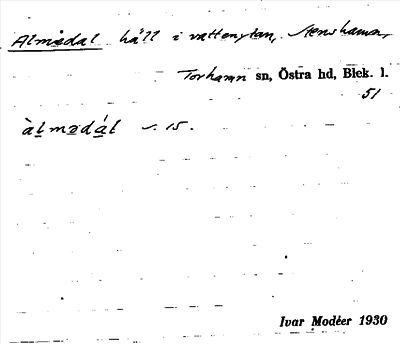 Almedal häll i vattenytan, Stenshamn,
Torhamn sn, Östra hd, Blek. l.
51
àlmədál v. 15.
Ivar Modéer 1930